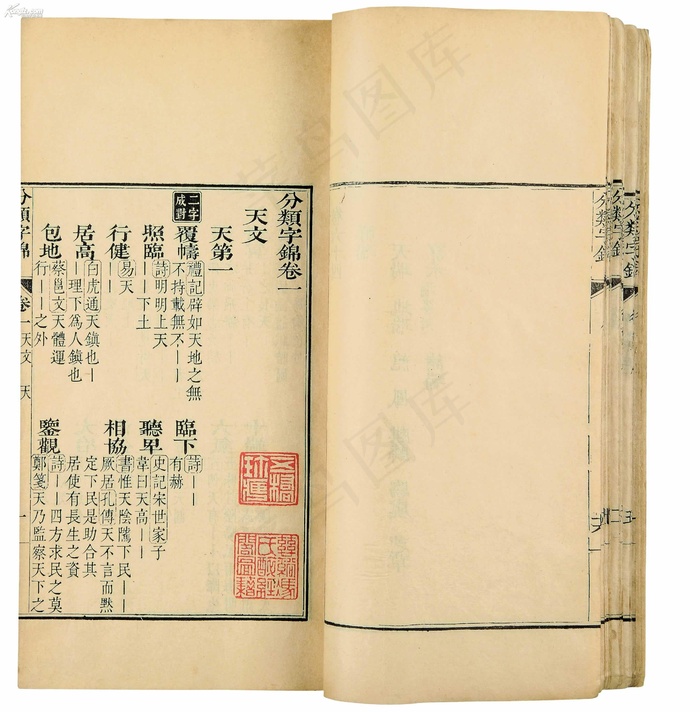 分類字錦卷一
天文
天第一
二字成對
覆幬 禮記辟如天地之無不持載無不｜｜
臨下 詩｜｜有赫
照臨 詩明明上天｜｜下土
聽卑 史記宋世家子韋曰天高｜｜
行健 易天｜｜
相協 書惟天陰隲下民｜｜厥居孔傳天不言而黙定下民是助合其居使有長生之資
居高 白虎通天鎮也｜｜理下為人鎮也
鑒觀 詩｜｜四方求民之莫鄭箋天乃監察天下之
包地 蔡邕天文體運行｜｜之外
分類字錦
卷一 天文 天
一
分類字錦
分類字錦